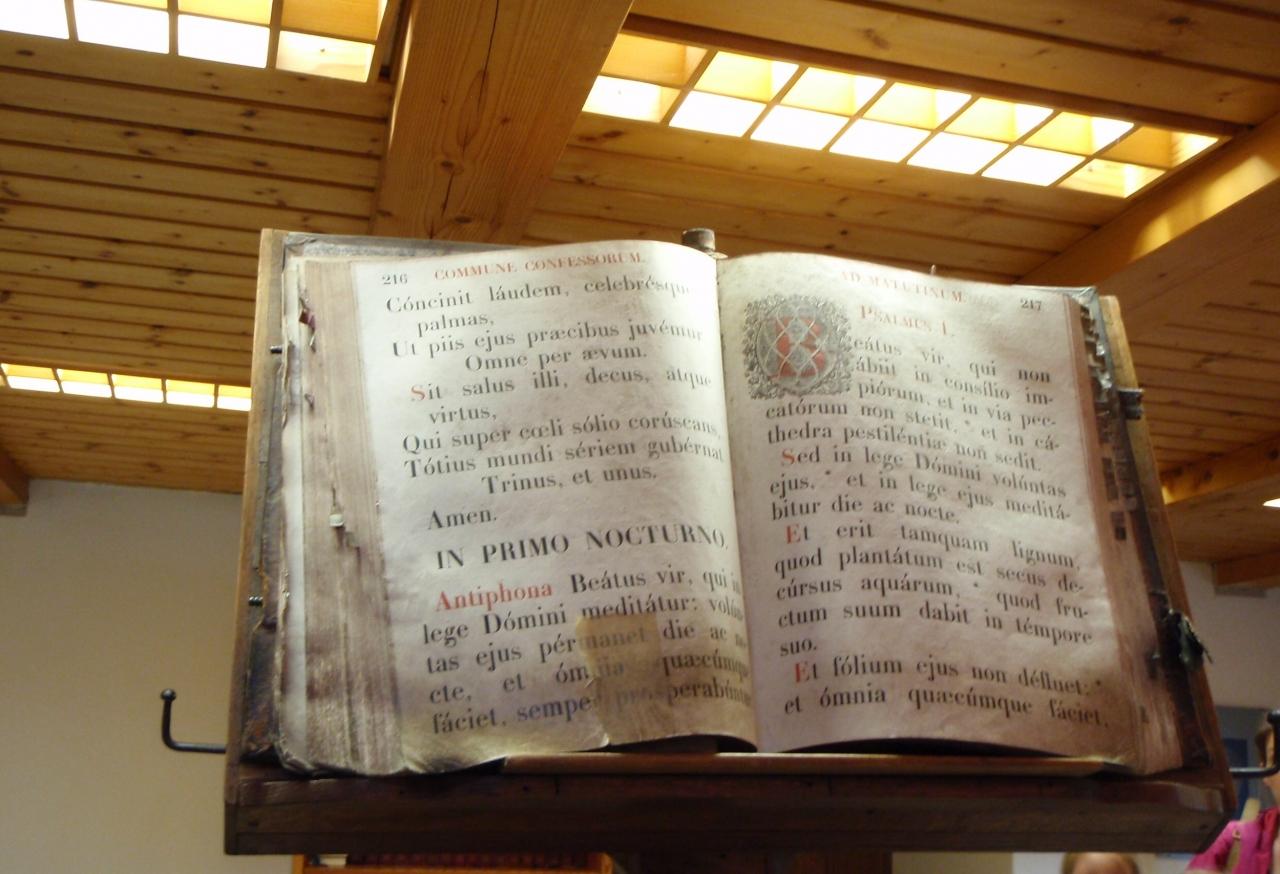 216 COMMUNE CONFESSORUM.
Cóncinit láudem, celebrésque
palmas,
Ut piis ejus præcibus juvémur
Omne per ævum.
Sit salus illi, decus, atque
virtus,
Qui super cœli sólio corúscans,
Tótius mundi sériem gubérnat
Trinus, et unus.
Amen.
IN PRIMO NOCTURNO.
Antiphona Beátus vir, qui in
lege Dómini meditátur: volún-
tas ejus pérmanet die ac no-
cte, et ómnia quæcúmque
fáciet, semper prosperabúntur
AD MATUTINUM. 217
PSALMUS 1.
Beátus vir, qui non
ábiit in consílio im-
piórum, et in via pec-
catórum non stetit, * et in cá-
thedra pestiléntiæ non sedit.
Sed in lege Dómini volúntas
ejus, * et in lege ejus meditá-
bitur die ac nocte.
Et erit tamquam lignum,
quod plantátum est secus de-
cúrsus aquárum, * quod fru-
ctum suum dabit in témpore
suo.
Et fólium ejus non défluet: *
et ómnia quæcúmque fáciet,